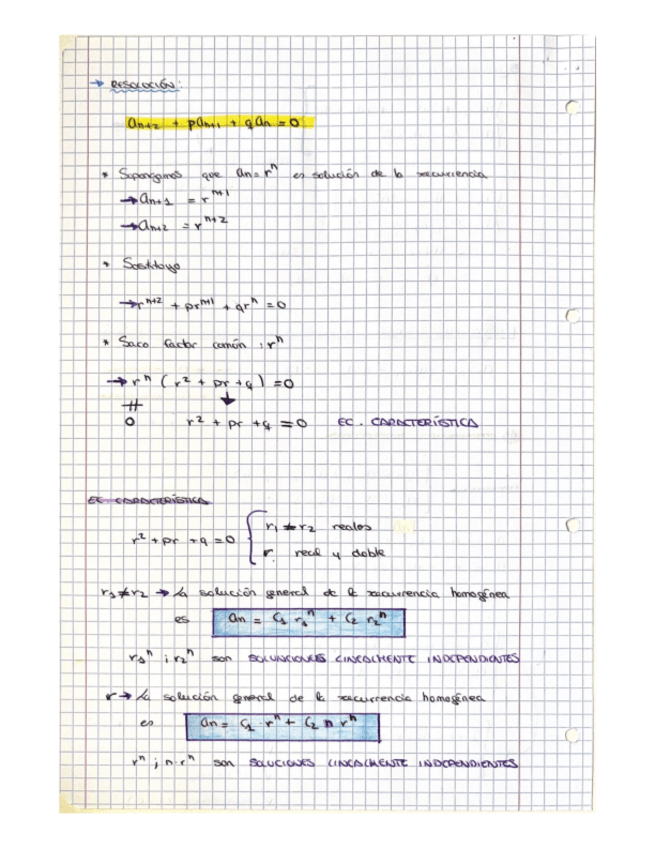 → RESOLUCIÓN:
an+2 + pan+1 + qan = 0
* Supongamos que an = rⁿ es solución de la recurrencia
→ an+1 = rⁿ⁺¹
→ an+2 = rⁿ⁺²
* Sustituyo
→ rⁿ⁺² + prⁿ⁺¹ + qrⁿ = 0
* Saco factor común : rⁿ
→ rⁿ ( r² + pr + q ) = 0
≠ ↓
0 r² + pr + q = 0 EC. CARACTERÍSTICA
EC CARACTERÍSTICA
r² + pr + q = 0 { r₁ ≠ r₂ reales
r. real y doble
r₁ ≠ r₂ → La solución general de la recurrencia homogénea
es an = C₁ r₁ⁿ + C₂ r₂ⁿ
r₁ⁿ ; r₂ⁿ son SOLUNCIONES LINEALMENTE INDEPENDIENTES
r → La solución general de la recurrencia homogénea
es an = C₁ · rⁿ + C₂ n rⁿ
rⁿ ; n·rⁿ son SOLUCIONES LINEALMENTE INDEPENDIENTES